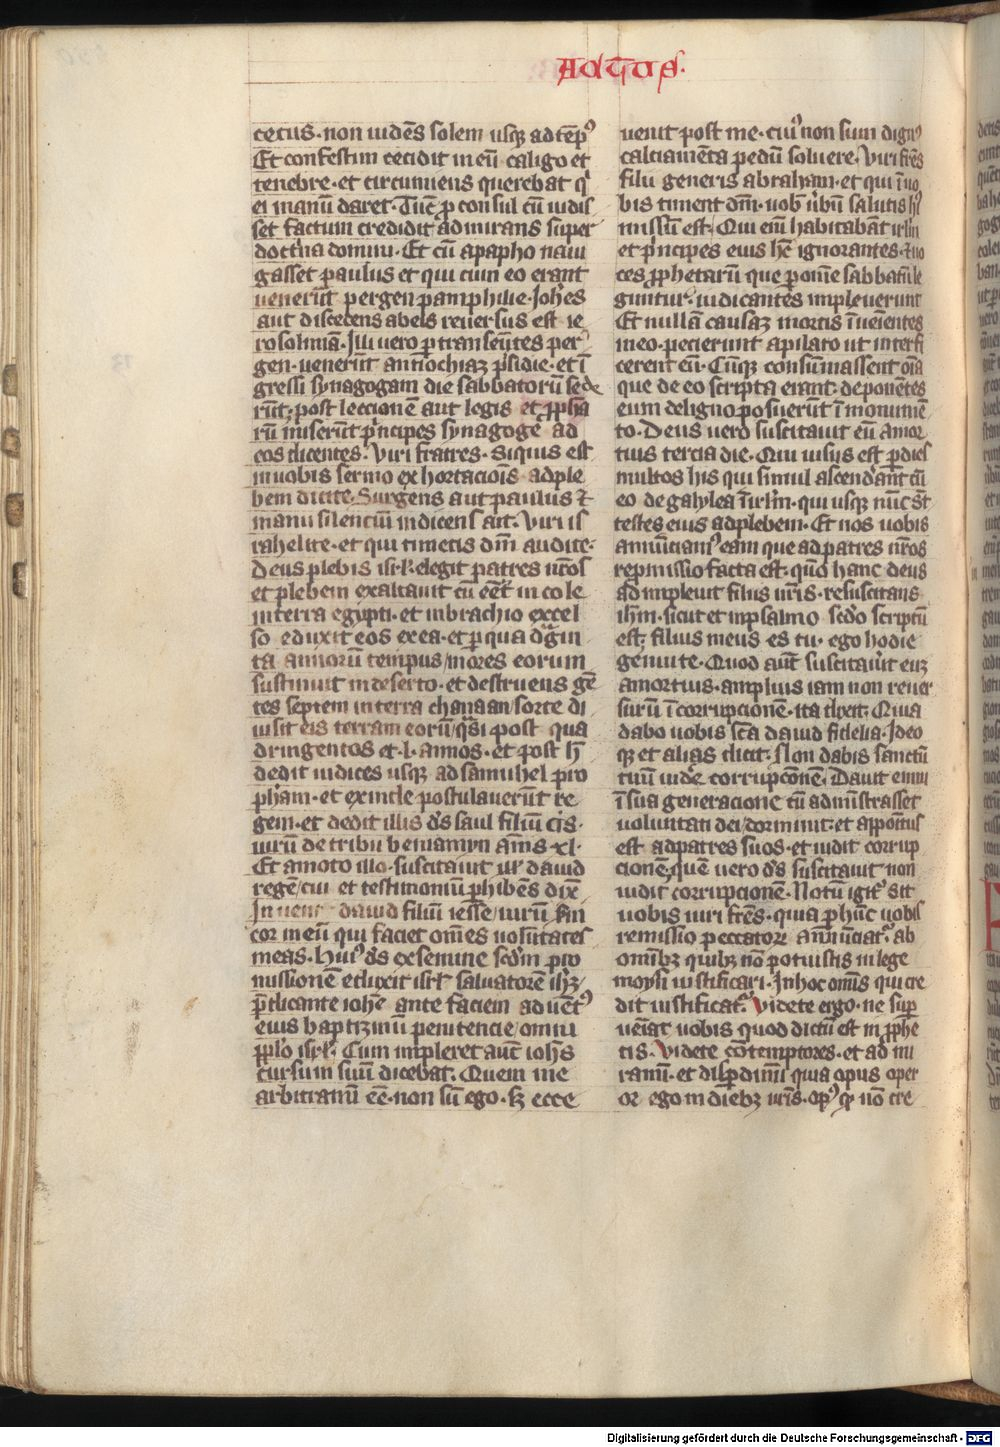 Actus.
cecus. non uidēs solem usq; ad tēpꝰ
Et confestim cecidit in eū caligo et
tenebre. et circumiens querebat qͥ
ei manū daret. Tūc ꝓconsul cū uidis
set factum credidit admirans super
doctͥna domini. Et cū apapho naui
gasset paulus et qui cum eo erant
uenerūt pergen pamphilie. Joh̄es
aut discedens ab eis reuersus est ie
rosolimā. Illi uero ꝑtranseūtes per
gen. uenerūt antiochiaꝫ p̄sidie. et ī
gressi synagogam die sabbatorū sede
rūt. post leccionē aut legis et ꝓph̄a
rū miserūt pͥncipes synagoge ad
eos dicentes. Viri fratres. Siquis est
in uobis sermo exhortaciōis adple
bem dicite. Surgens aut paulus et
manu silenciū indicens ait. Viri is
rahelite. et qui timetis dm̄ audite.
Deus plebis isrl̄. elegit patres nr̄os
et plebem exaltauit cū eēt incole
in terra egypti. et in brachio excel
so eduxit eos ex ea. et ꝑ quadͣgin
ta annorū tempus mores eorum
sustinuit in deserto. et destruens gē
tes septem in terra chanaan sorte di
uisit eis terram eorū qͣsi post qua
dringentos et .l. annos. et post h̄
dedit iudices usq; ad samuhel pro
pham. et exinde postulauerūt re
gem. et dedit illis ds̄ saul filiū cis.
uirū de tribu beniamyn an̄is .xl.
Et amoto illo. suscitauit ill̄ dauid
regē cui et testimoniū ꝑhibēs dix̄
Inueni dauid filiū iesse uirū ẜm
cor meū qui faciet om̄es uolūtates
meas. Huiꝰ ds̄ ex semine scd̄m pro
missionē eduxit isrl̄ saluatorē ih̄ꝫ
p̄dicante ioh̄e ante faciem aduētꝰ
eius baptizmū penitencie omni
ꝓplo isrl̄. Cum impleret aut ioh̄s
cursum suū dicebat. Quem me
arbitramī eē. non sū ego. sꝫ ecce
uenit post me. cuiꝰ non sum dignꝰ
calciamēta pedū soluere. Viri fr̄es
filii generis abraham. et qui ī uo
bis timent dm̄. uob̄ ūbū salutis hͥ
missū est. Qui enī habitabāt irl̄m
et pͥncipes eius hc̄ ignorantes. et uo
ces ꝓphetarū que ꝑ om̄e sabbatū le
guntur. iudicantes impleuerunt
Et nullā causaꝫ mortis īueientes
in eo. pecierunt a pilato ut interfi
cerent eū. Cūq; consūmassent oīa
que de eo scripta erant. deponētes
eum de ligno posuerūt ī monumē
to. Deus uero suscitauit eū amor
tuis tercia die. Qui uisus est ꝑ dies
multos his qui simul ascenderant cū
eo de galylea ī irl̄m. qui usq; nūc st̄
testes eius adplebem. Et nos uobis
annūciamꝰ eam que ad patres nr̄os
repmissio facta est. qm̄ hanc deus
adimpleuit filiis ur̄is. resuscitans
ih̄m. sicut et in psalmo scd̄o scriptū
est. filius meus es tu. ego hodie
genui te. Quod aūt suscitauit euꝫ
amortuis. amplius iam non reuer
surū ī corrupcionē. ita dixit. Quia
dabo uobis sc̄a dauid fidelia. Ideo
q; et alias dicit. Non dabis sanctū
tuū uide corrupcōnē. Dauit enim
ī sua generacione cū admīstrasset
uoluntati dei dormiuit. et appoitus
est ad patres suos. et uidit corrup
cionē. quē uero ds̄ suscitauit non
uidit corrupcionē. Notū igitͬ sit
uobis uiri fr̄es. quia ꝑ hūc uobis
remissio peccatorꝝ annūciatͬ. ab
omībꝫ quibꝫ nō potuistis in lege
moysi iustificari. In hoc omīs qui cre
dit iustificatͬ. Videte ergo. ne suꝑ
uēiat uobis quod dictū est in ꝓphe
tis. Videte cōtemptores. et admi
ramī. et disꝑdimī quia opus oper
or ego in diebꝫ ur̄is. opꝰ qͦ nō cre
Digitalisierung gefördert durch die Deutsche Forschungsgemeinschaft - DFG